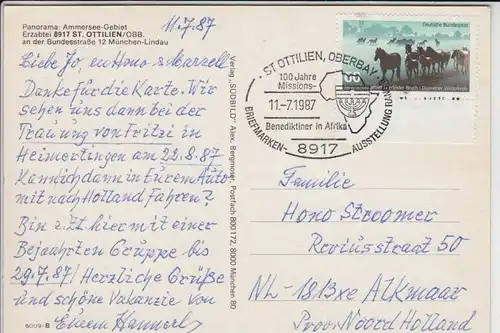 Panorama: Ammersee-Gebiet
Erzabtei 8917 ST. OTTILIEN/OBB.
an der Bundesstraße 12 München-Lindau
11.7.87
Liebe Jo, en Hono + Marzell
Danke für die Karte. Wir
sehen uns dann bei der
Trauung von Fritzi in
Heimertingen am 22.8.87
Kann ich dann in Eurem Auto
mit nach Holland fahren?
Bin z. Zt hier mit einer
Bejahrten Gruppe bis
29.7.87/ Herzliche Grüße
und schöne Vakanzie von
Eurem Hannerl
6009: B
Verlag „SÜDBILD" Alex. Bergmoser, Postfach 800172, 8000 München 80
Deutsche Bundespost
ST OTTILIEN, OBERBAY
100 Jahre
Missions-
11.-7.1987
Benediktiner in Afrika
BRIEFMARKEN-
AUSSTELLUNG
8917
Familie
Hono Stroomer
Reviusstraat 50
NL-1813xe Alkmaar
Prov. Noord Holland